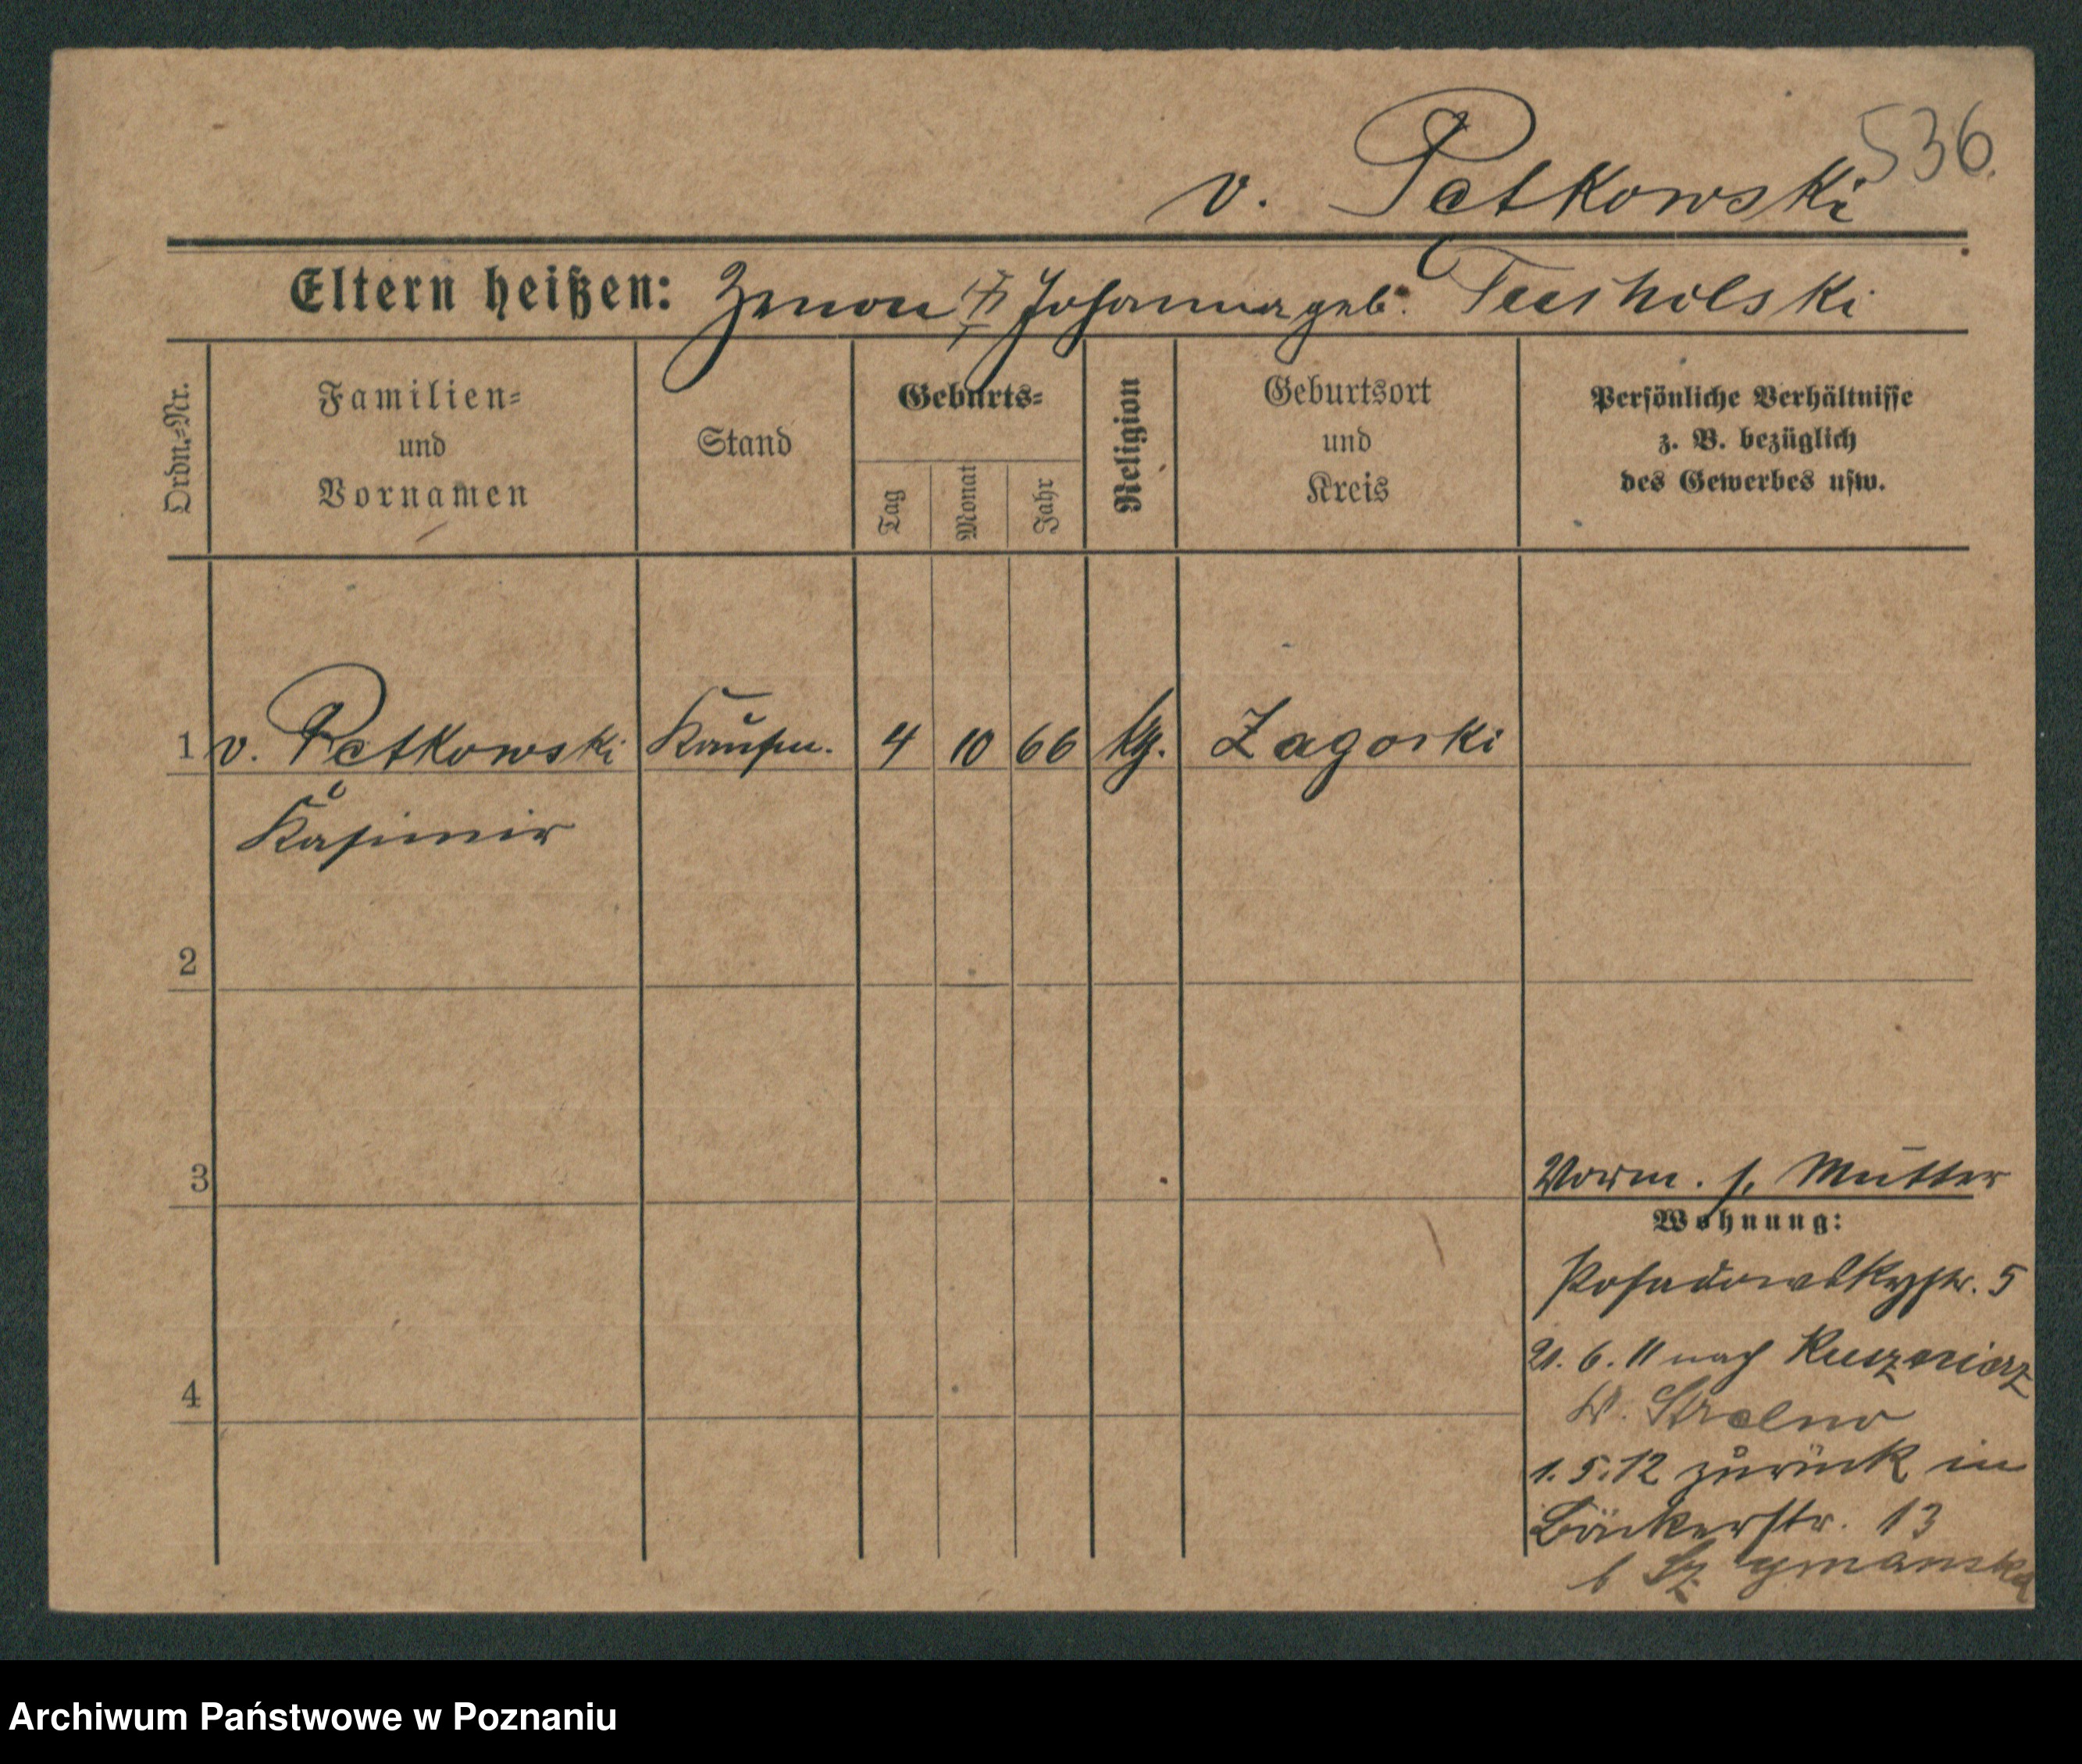 536.
v. Petkowski
Eltern heißen: Zenon Johanna geb.
Ordn.=Nr.
Familien=
und
Vornamen
Stand
Geburts=
Tag
Monat
Jahr
Religion
Geburtsort
und
Kreis
Persönliche Verhältnisse
z. B. bezüglich
des Gewerbes usw.
1 v. Petkowski Kaufm. 4 10 66 kg. Zagorki
Kasimir
2
3
Vorm. s. Mutter
Wohnung:
Posadowskystr. 5
21. 6. 11 nach
4
Strelno
1. 5. 12 zurück in
Bäckerstr. 13
b Szymanska
Archiwum Państwowe w Poznaniu